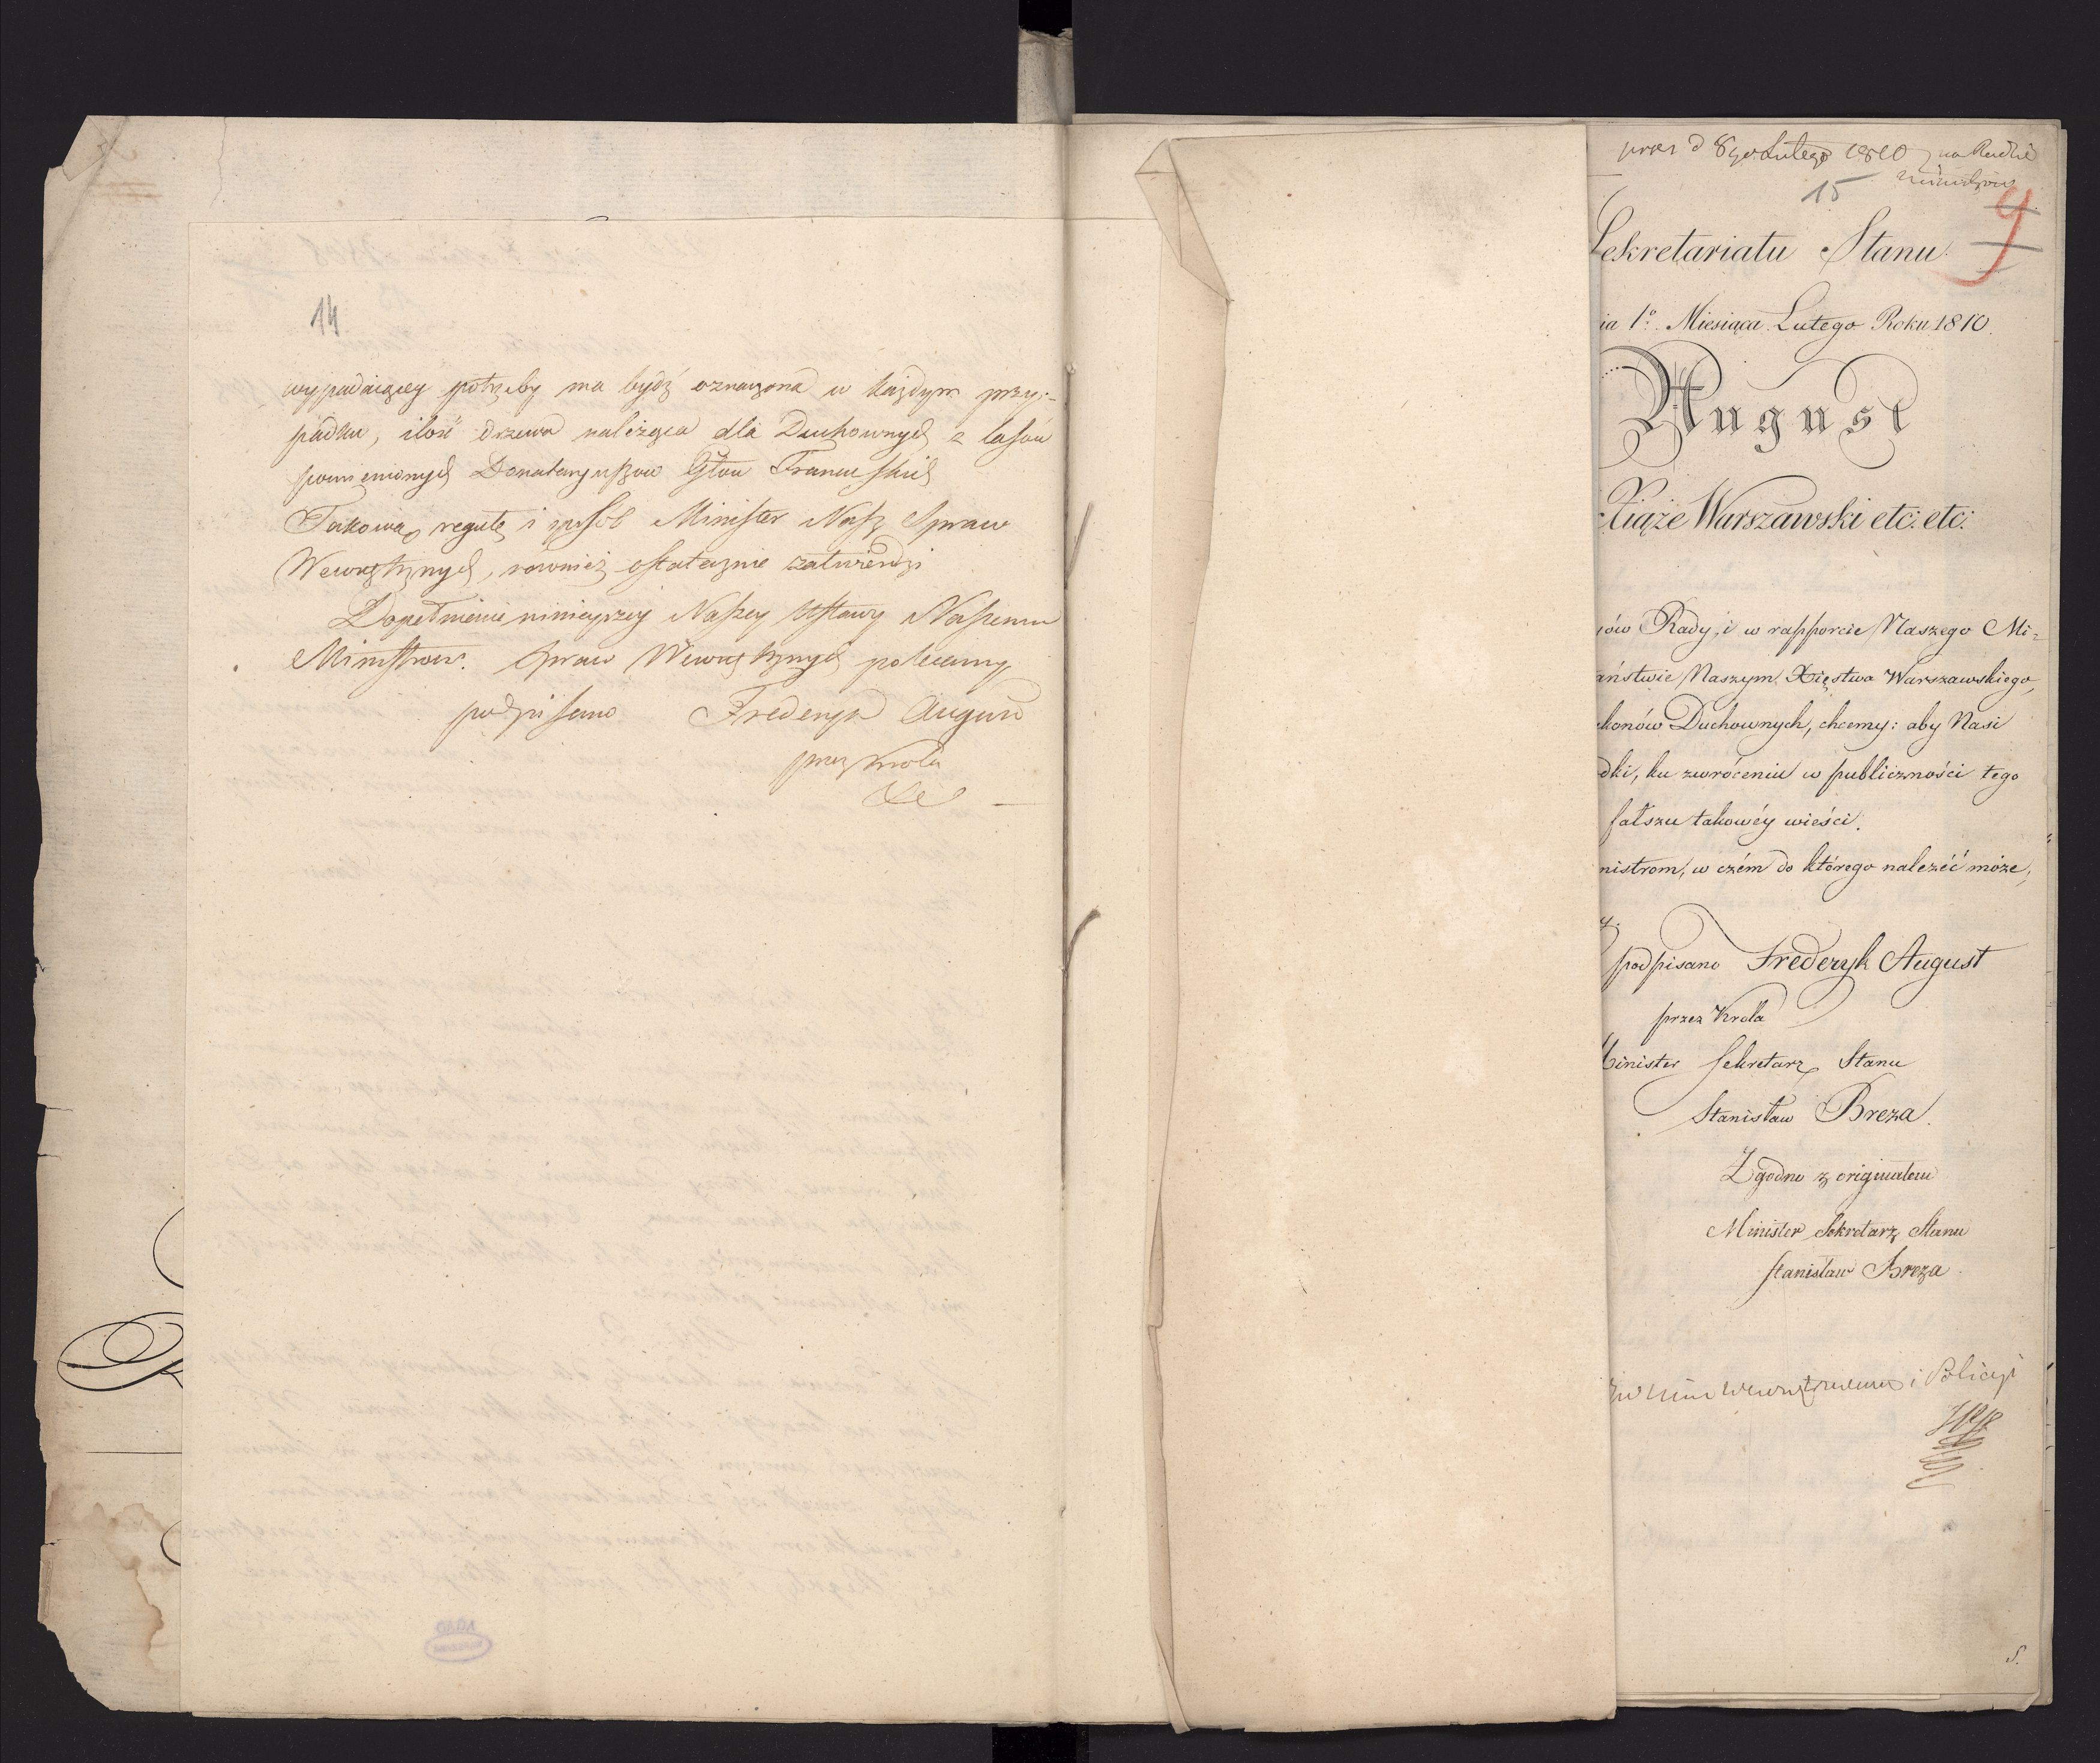 14
wypadaiącey potrzeby ma bydź oznaczona w każdym przy-
padku, ilość drzewa należąca dla Duchownych z lasów
pomienionych Donataryuszow Głow Francuskich
Takową regułę i sposób Minister Nasz Spraw
Wewnętrznych, rownież ostatecznie zatwierdzi
Dopełnienie ninieyszey Naszey Ustawy Naszemu
Ministrowi Spraw Wewnętrznych polecamy
podpisano Frederyk August
przez Krola
prez d 8go Lutego 1810 na Radzie
Ministrów
15
9
Sekretariatu Stanu
ia 1o. Miesiąca Lutego Roku 1810.
August
Xiąże Warszawski etc: etc:
ów Rady, i w rapporcie Naszego Mi-
aństwie Naszym Xięstwa Warszawskiego,
konów Duchownych, chcemy: aby Nasi
dki, ku zwróceniu w publiczności tego
fałszu takowéy wieści.
nistrom, w czém do którego należéć może,
y.
podpisano Frederyk August
przez Krola
Minister Sekretarz Stanu
Stanisław Breza.
Zgodno z originałem
Minister Sekretarz Stanu
Stanisław Breza
Wewnętrznemu i Policyi
S.